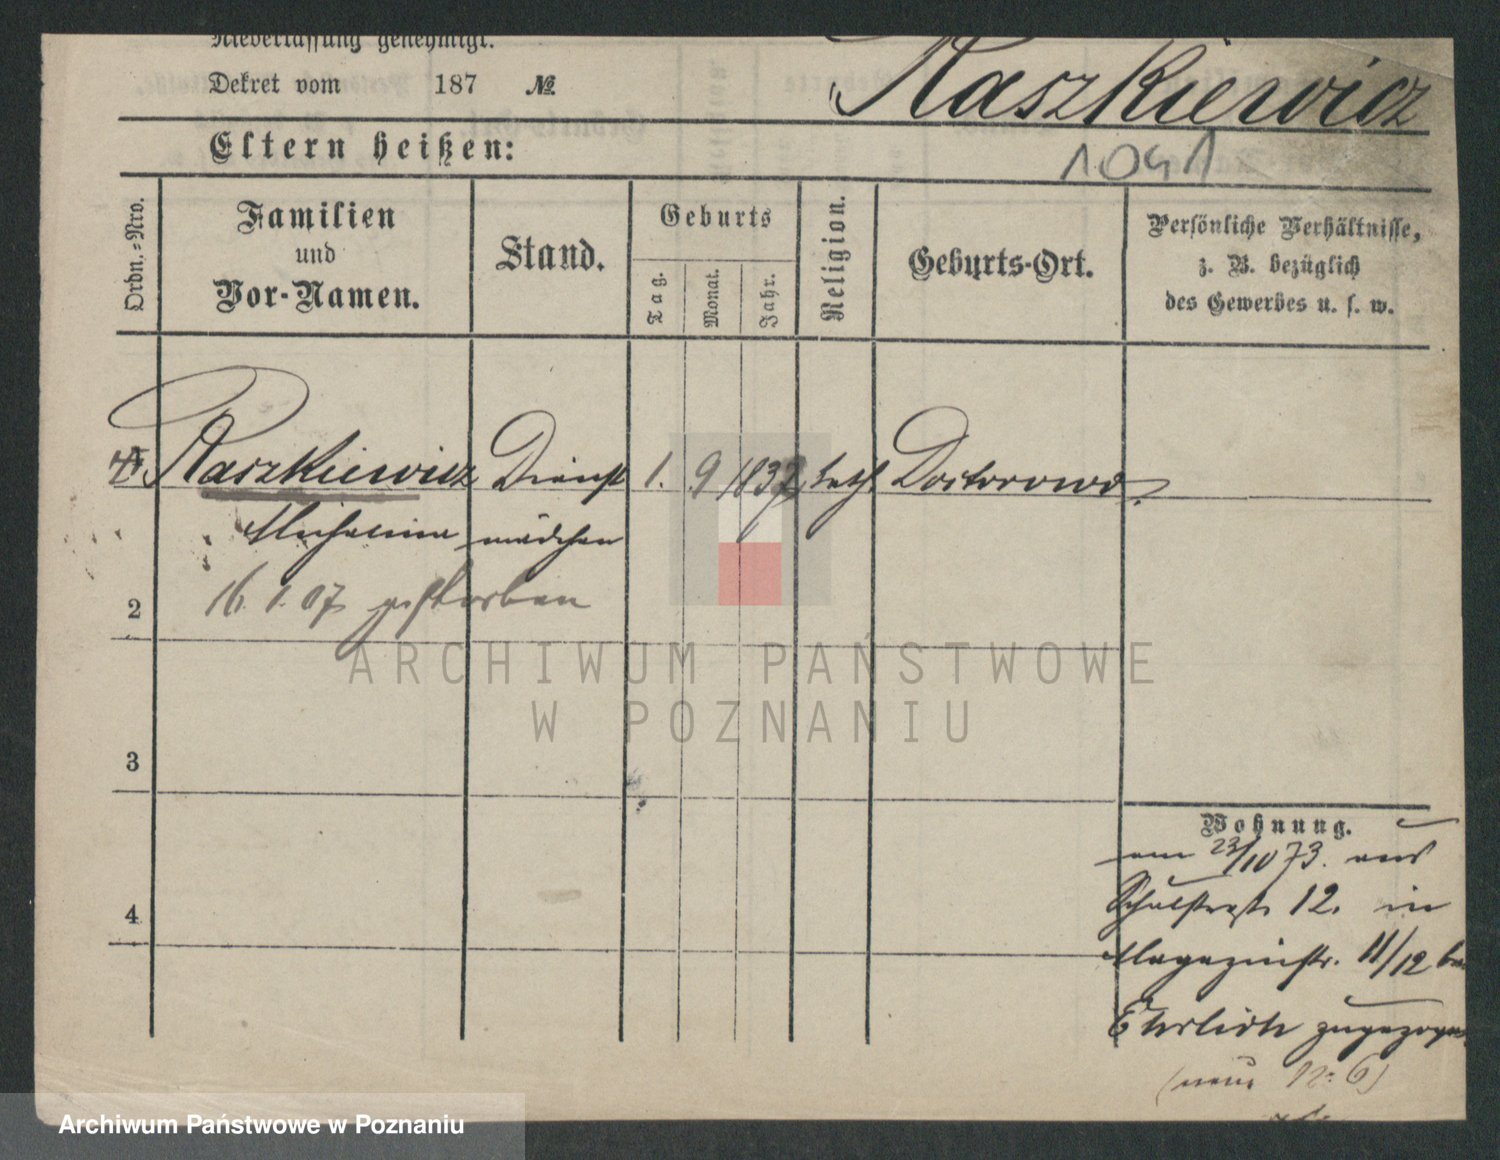 Niederlassung genehmigt.
Dekret vom 187 №
Raszkiewicz
Eltern heißen:
1041
Ordn.-Nro.
Familien
und
Vor-Namen.
Stand.
Geburts
Tag.
Monat.
Jahr.
Religion.
Geburts-Ort.
Persönliche Verhältnisse,
z. B. bezüglich
des Gewerbes u. s. w.
Raszkiewicz Dienst 1. 9 1837 kath. Doktorowo
Michalina mädchen
2 16. 1. 07 gestorben
3
4
Wohnung.
am 23/10 73. aus
Schulstraße 12. in
Magazinstr. 11/12 bei
Ehrlich zugezogen
(neue No 6)
ARCHIWUM PAŃSTWOWE
W POZNANIU
Archiwum Państwowe w Poznaniu